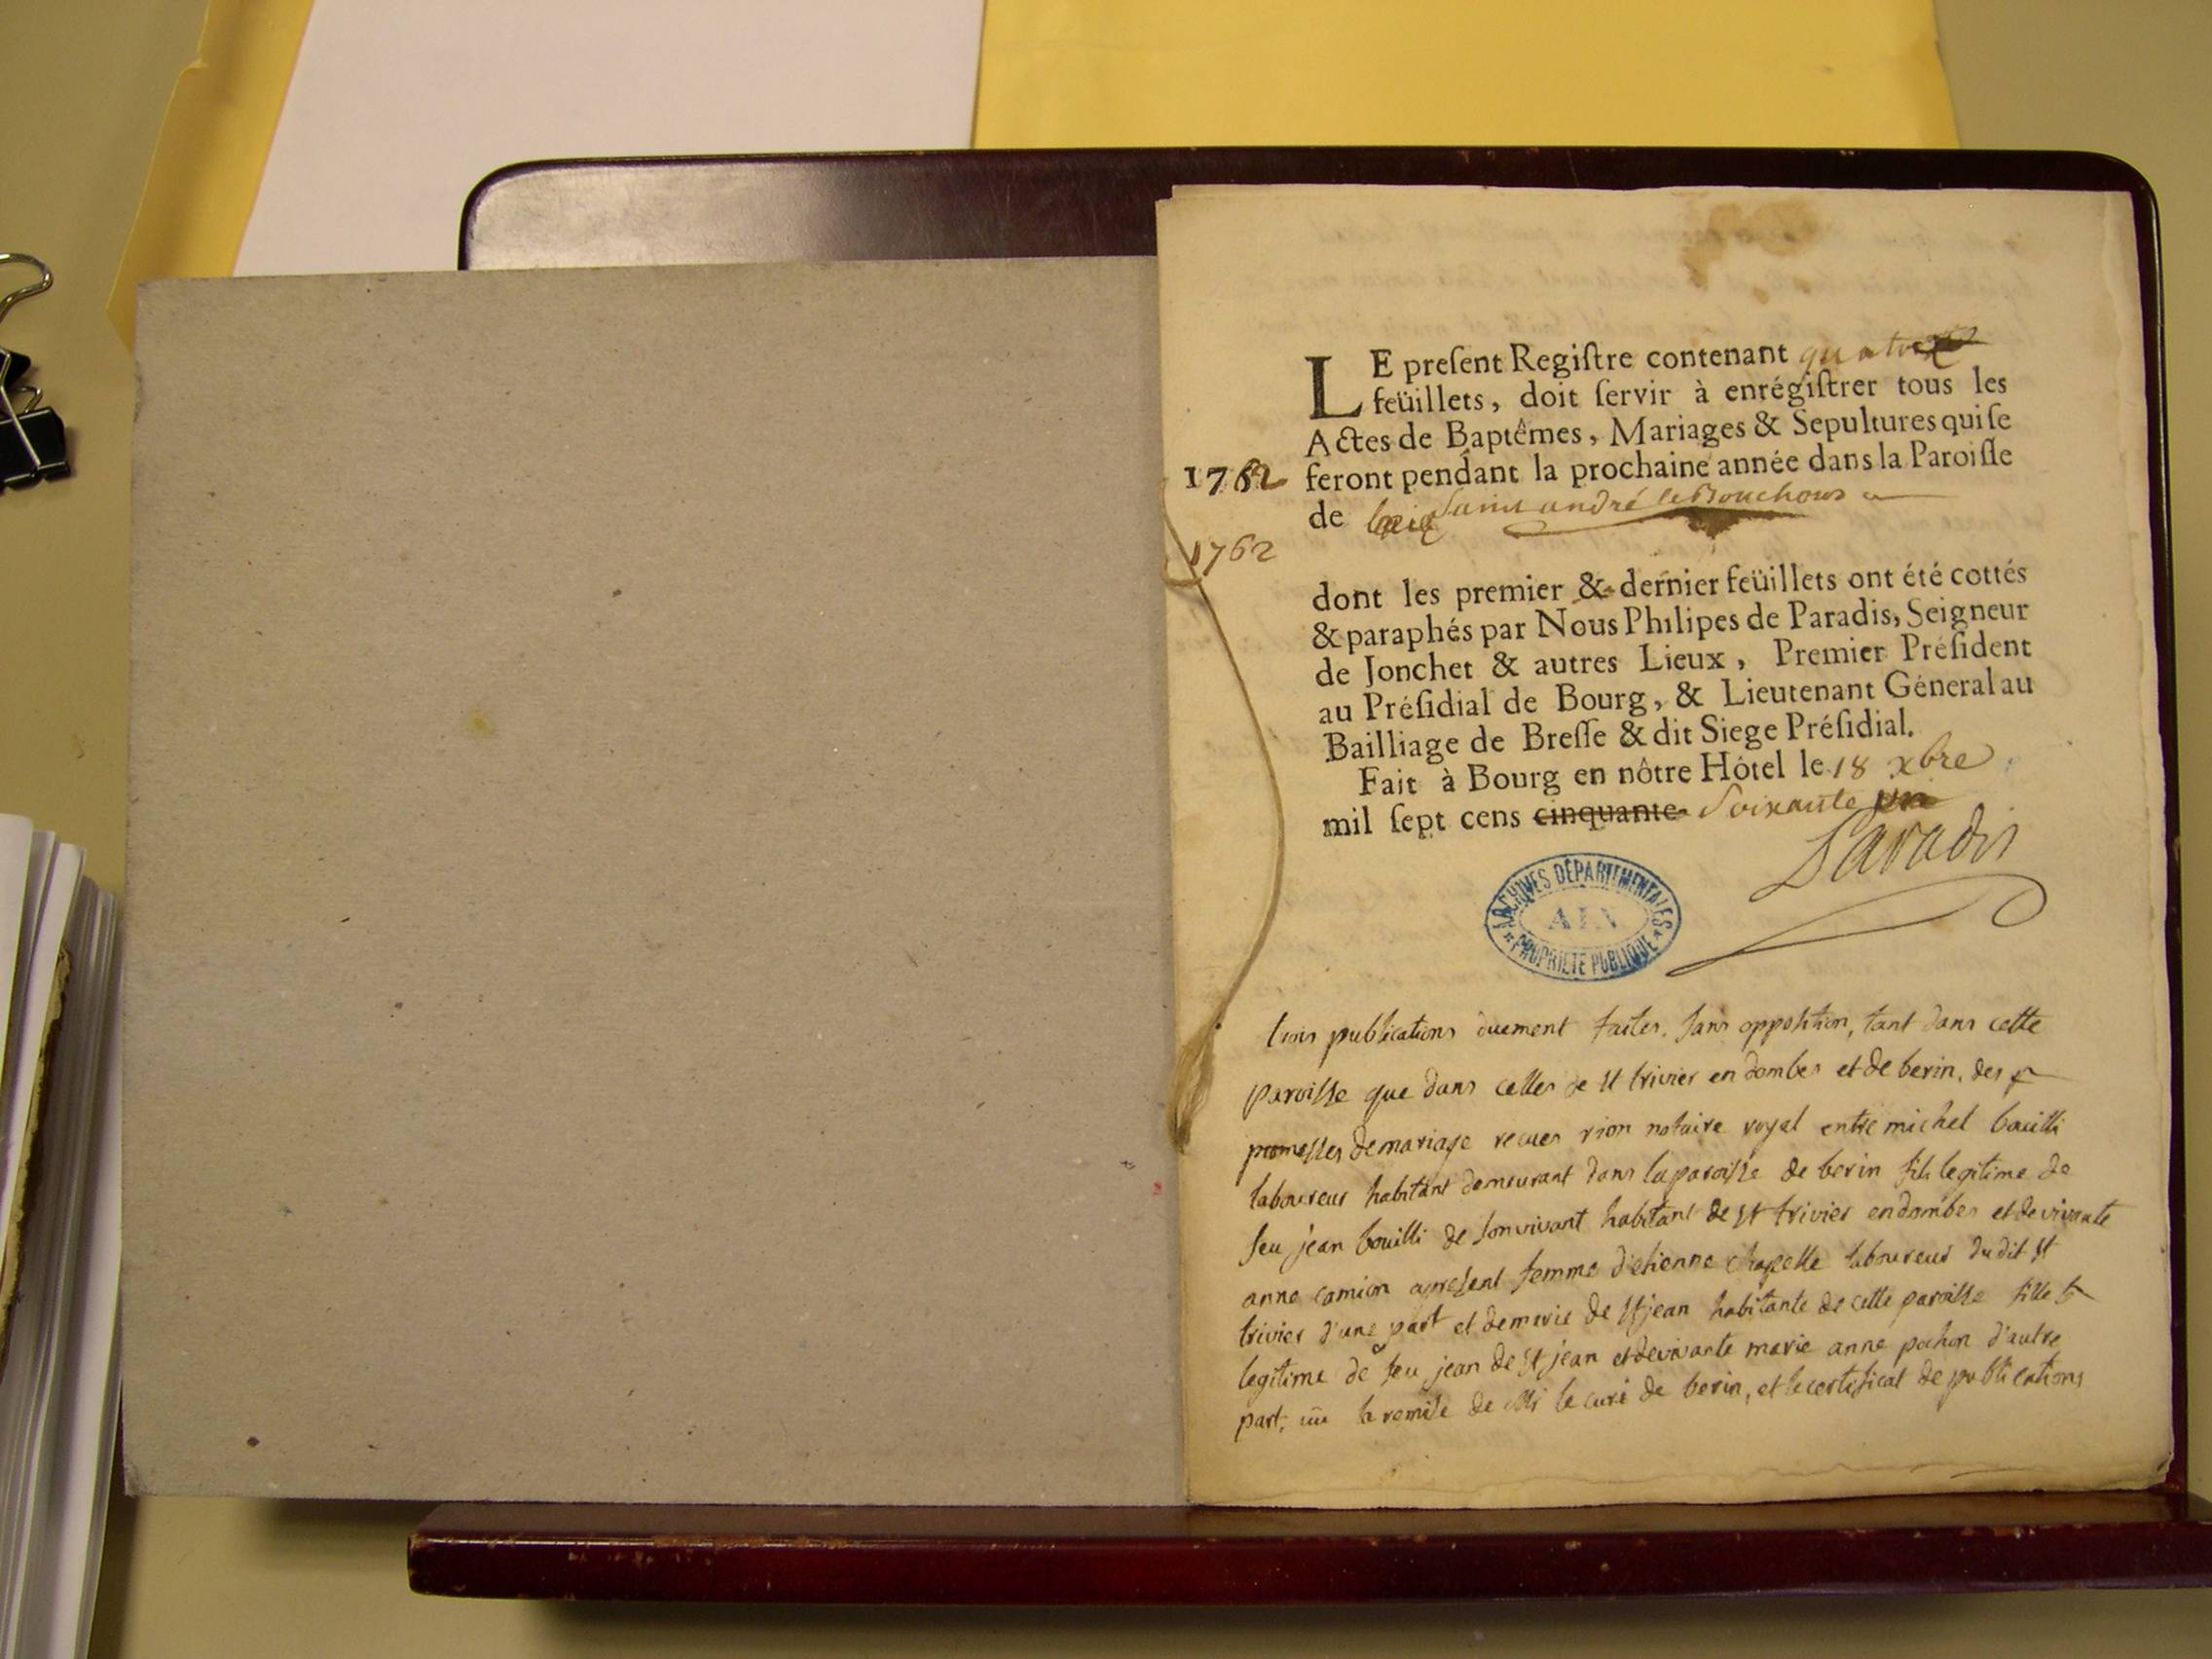 LE preſent Regiſtre contenant quatre
feüillets, doit ſervir à enrégiſtrer tous les
Actes de Baptêmes, Mariages & Sepultures qui ſe
1762 feront pendant la prochaine année dans la Paroiſſe
de Saint andré le Bouchoux
1762
dont les premier & dernier feüillets ont été cottés
& paraphés par Nous Philipes de Paradis, Seigneur
de Jonchet & autres Lieux, Premier Préſident
au Préſidial de Bourg, & Lieutenant Géneral au
Bailliage de Breſſe & dit Siege Préſidial.
Fait à Bourg en nôtre Hôtel le 18 xbre
mil ſept cens cinquante Soixante un
Paradis
ARCHIVES DÉPARTEMENTALES
AIN
PROPRIÉTÉ PUBLIQUE
trois publications duement faites, sans opposition, tant dans cette
paroisse que dans celles de st trivier en dombes et de berin, des
promesses de mariage recues rion notaire royal entre michel bouilli
laboureur habitant demeurant dans la paroisse de berin fils legitime de
feu jean bouilli de son vivant habitant de st trivier en dombes et de vivante
anne camion apresent femme d'etienne chapelle laboureur dudit st
trivier d'une part et demarie de st jean habitante de cette paroisse fille
legitime de feu jean de st jean et de vivante marie anne pochon d'autre
part; vu la remise de Mr le curé de berin, et le certificat de publications